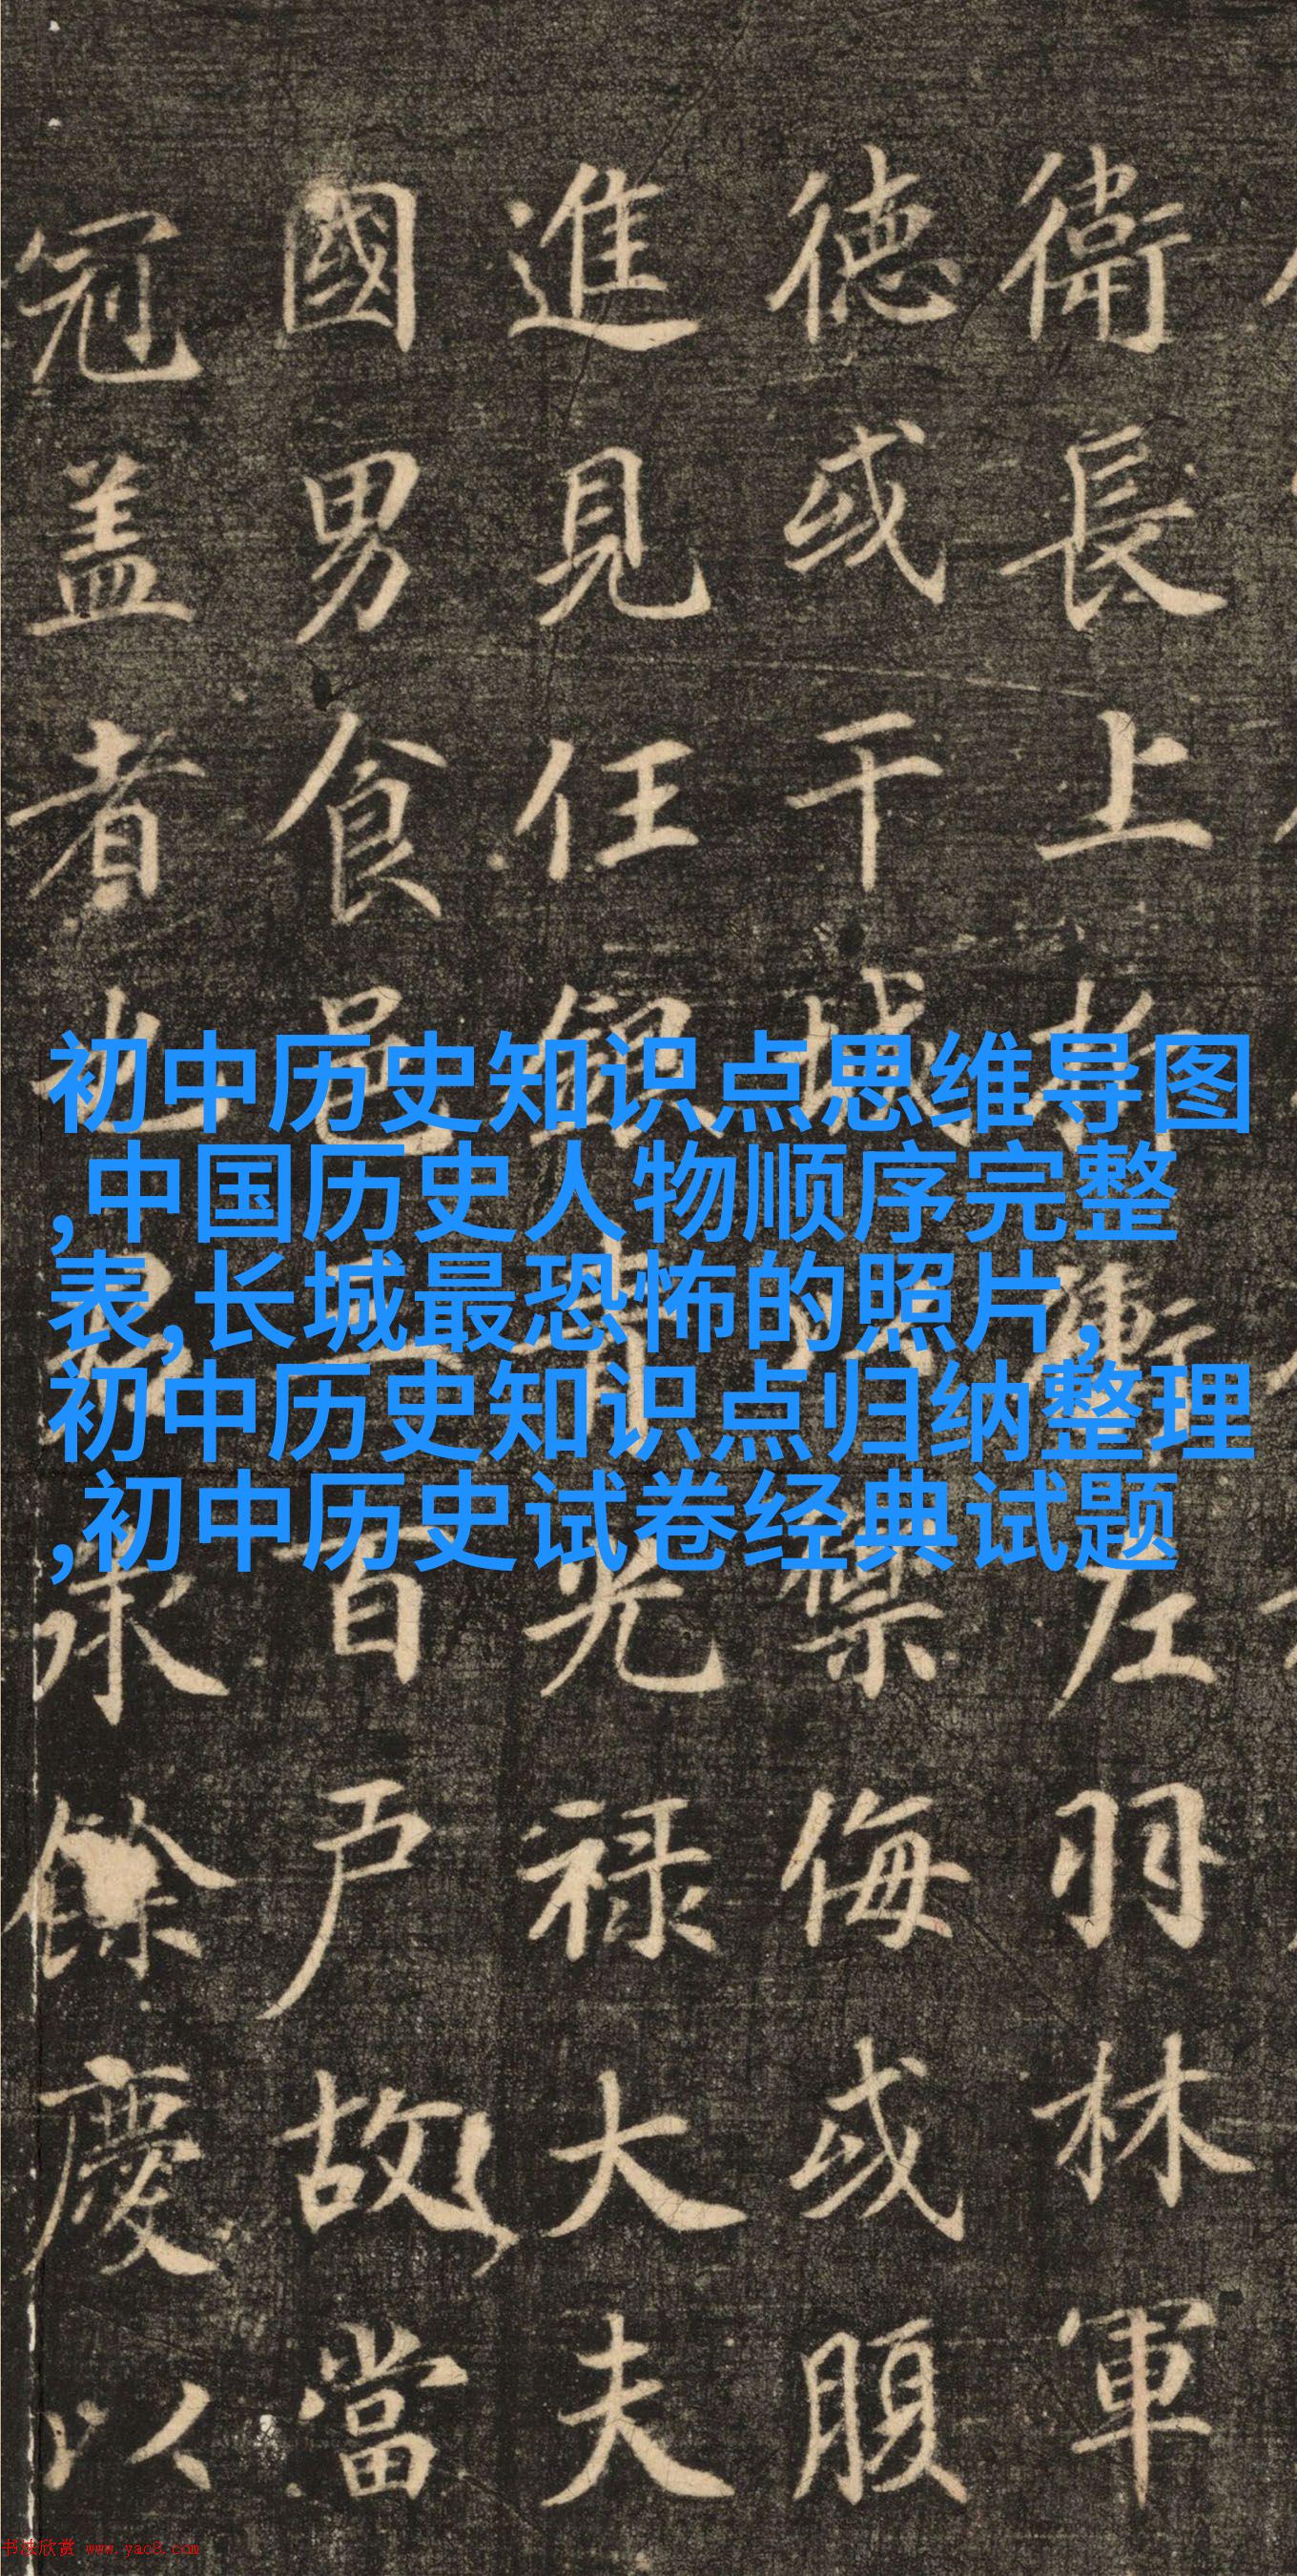 衛長上
德或干城
進見任
國男食邑
冠盖者也
左羽林軍
禦侮或腹
光禄大夫
百户故當
承餘慶以
初中历史知识点思维导图
,中国历史人物顺序完整
表,长城最恐怖的照片,
初中历史知识点归纳整理
,初中历史试卷经典试题
书法欣赏 www.yac8.com